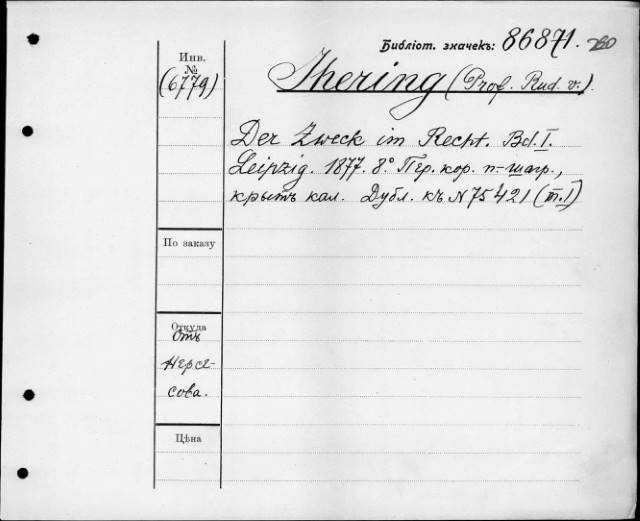 Библіот. значекъ: 86871.
Инв.
№
(6779)
Ihering (Prof. Rud. v.).
Der Zweck im Recht. Bd. I.
Leipzig. 1877. 8° Пер. кор. п.-шагр.,
крытъ кал. Дубл. къ N 75421 (т. I)
По заказу
Откуда
Отъ
Нерсе-
сова.
Цѣна